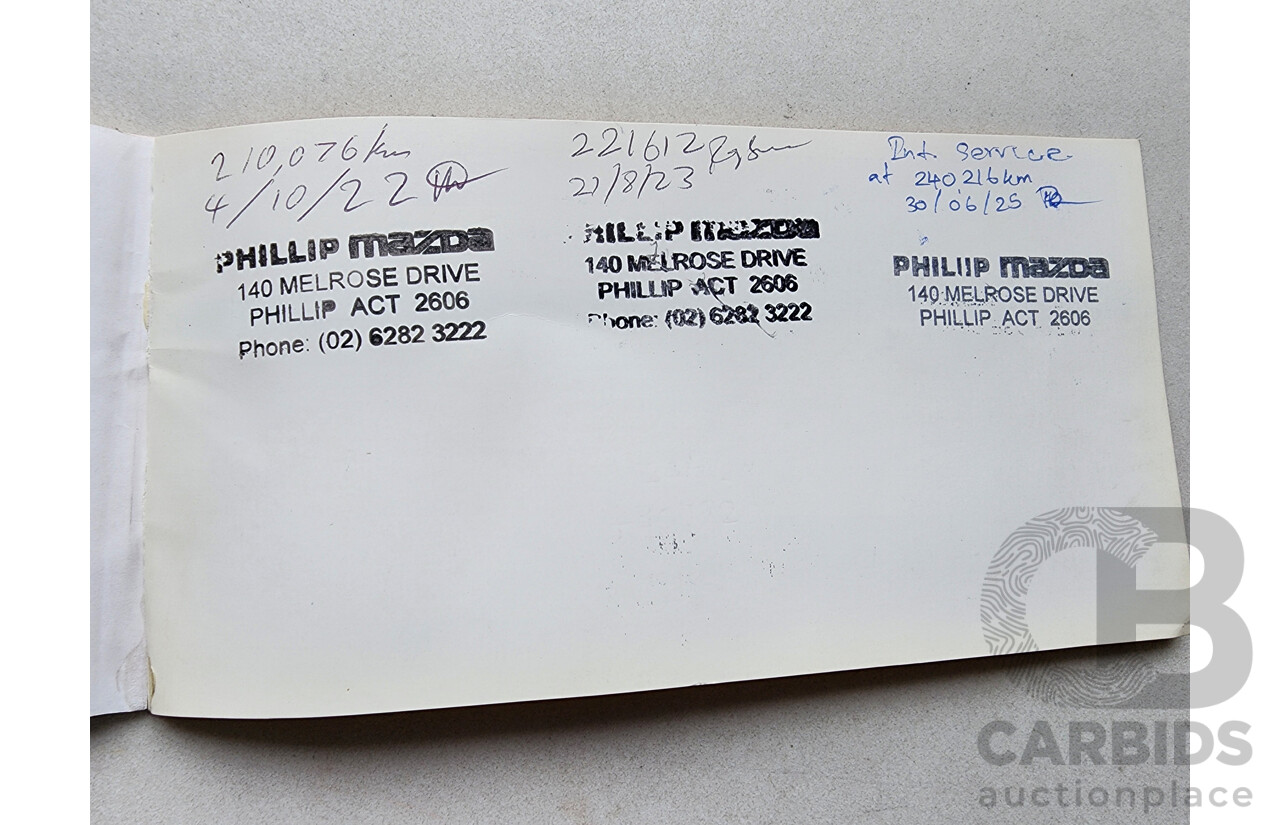 210,076km
4/10/22
PHILLIP mazda
140 MELROSE DRIVE
PHILLIP ACT 2606
Phone: (02) 6282 3222
221612
21/8/23
PHILLIP mazda
140 MELROSE DRIVE
PHILLIP ACT 2606
Phone: (02) 6282 3222
Int. Service
at 240216km
30/06/25
PHILLIP mazda
140 MELROSE DRIVE
PHILLIP ACT 2606
CB
CARBIDS
auctionplace